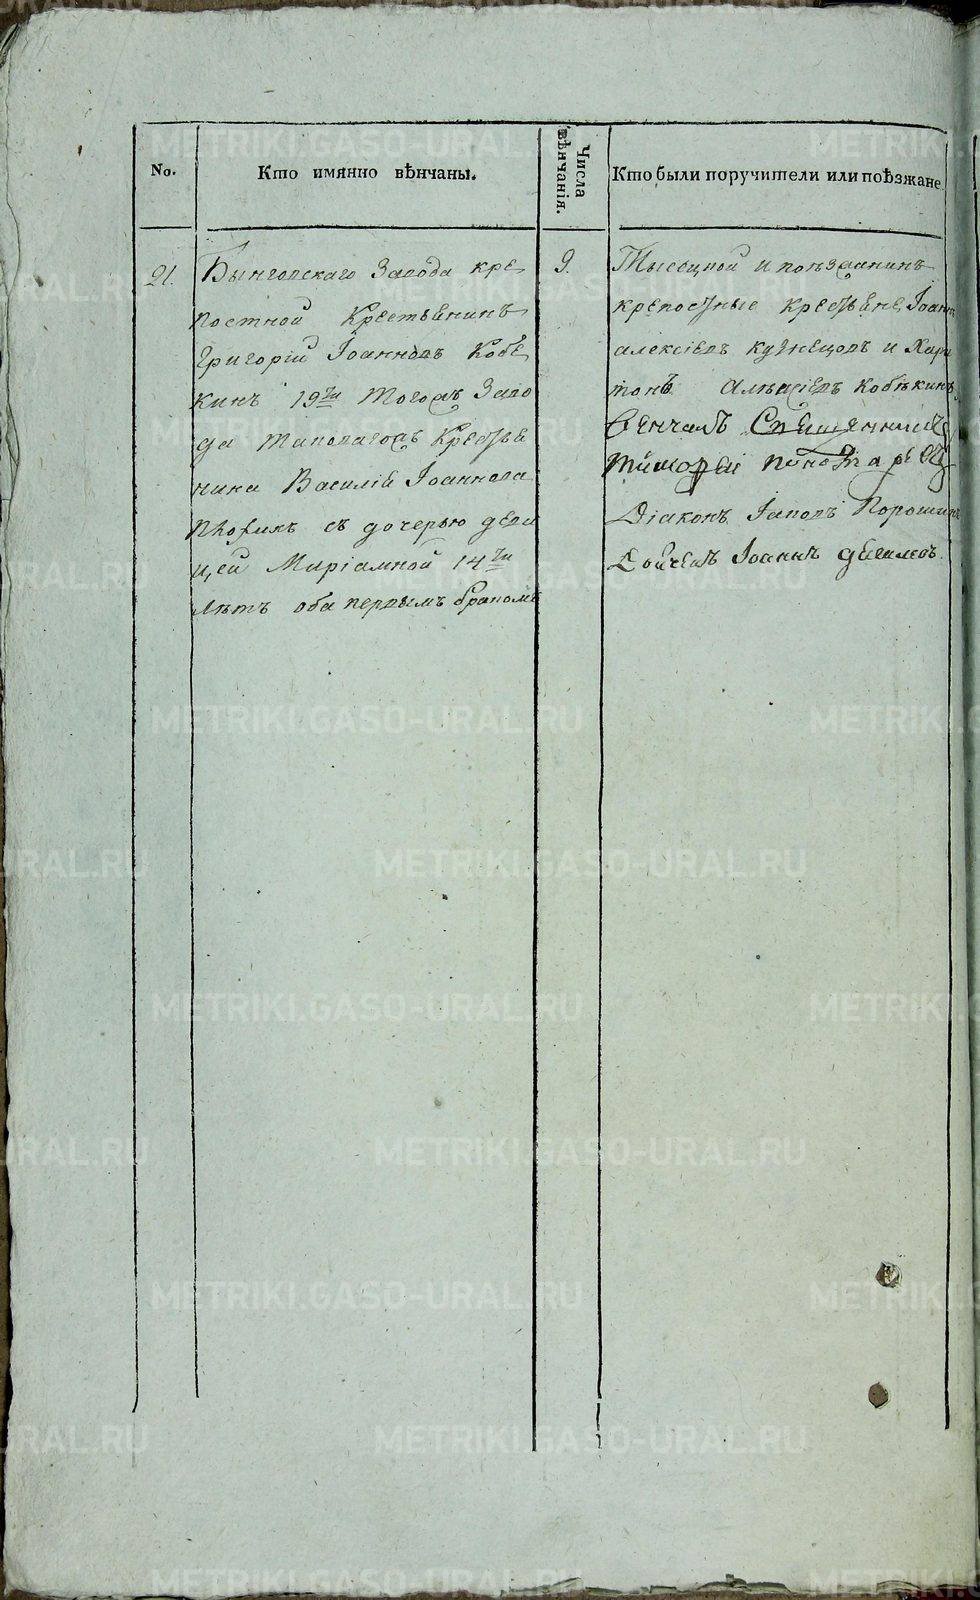 No.
Кто имянно вѣнчаны.
Числа вѣнчанія.
Кто были поручители или поѣзжане
21.
Бынговскаго Завода кре
постной Крестьянинъ
Григорій Іоанновъ Кобе
кинъ 19ти тогожъ Заво
да таковагожъ Крестья
нина Василія Іоаннова
съ дочерью деви
цей Маріамной 14ти
лѣтъ оба первымъ бракомъ
9.
Тысецкой и поѣзжанинъ
крепосные крестьяне Іоаннъ
алексіевъ кузнецовъ и Хари
тонъ Алексіевъ Кобѣкинъ
Венчалъ Священникъ
Тимофей Пономаревъ
Діаконъ Іаковъ Порошинъ
Іоаннъ
METRIKI.GASO-URAL.RU